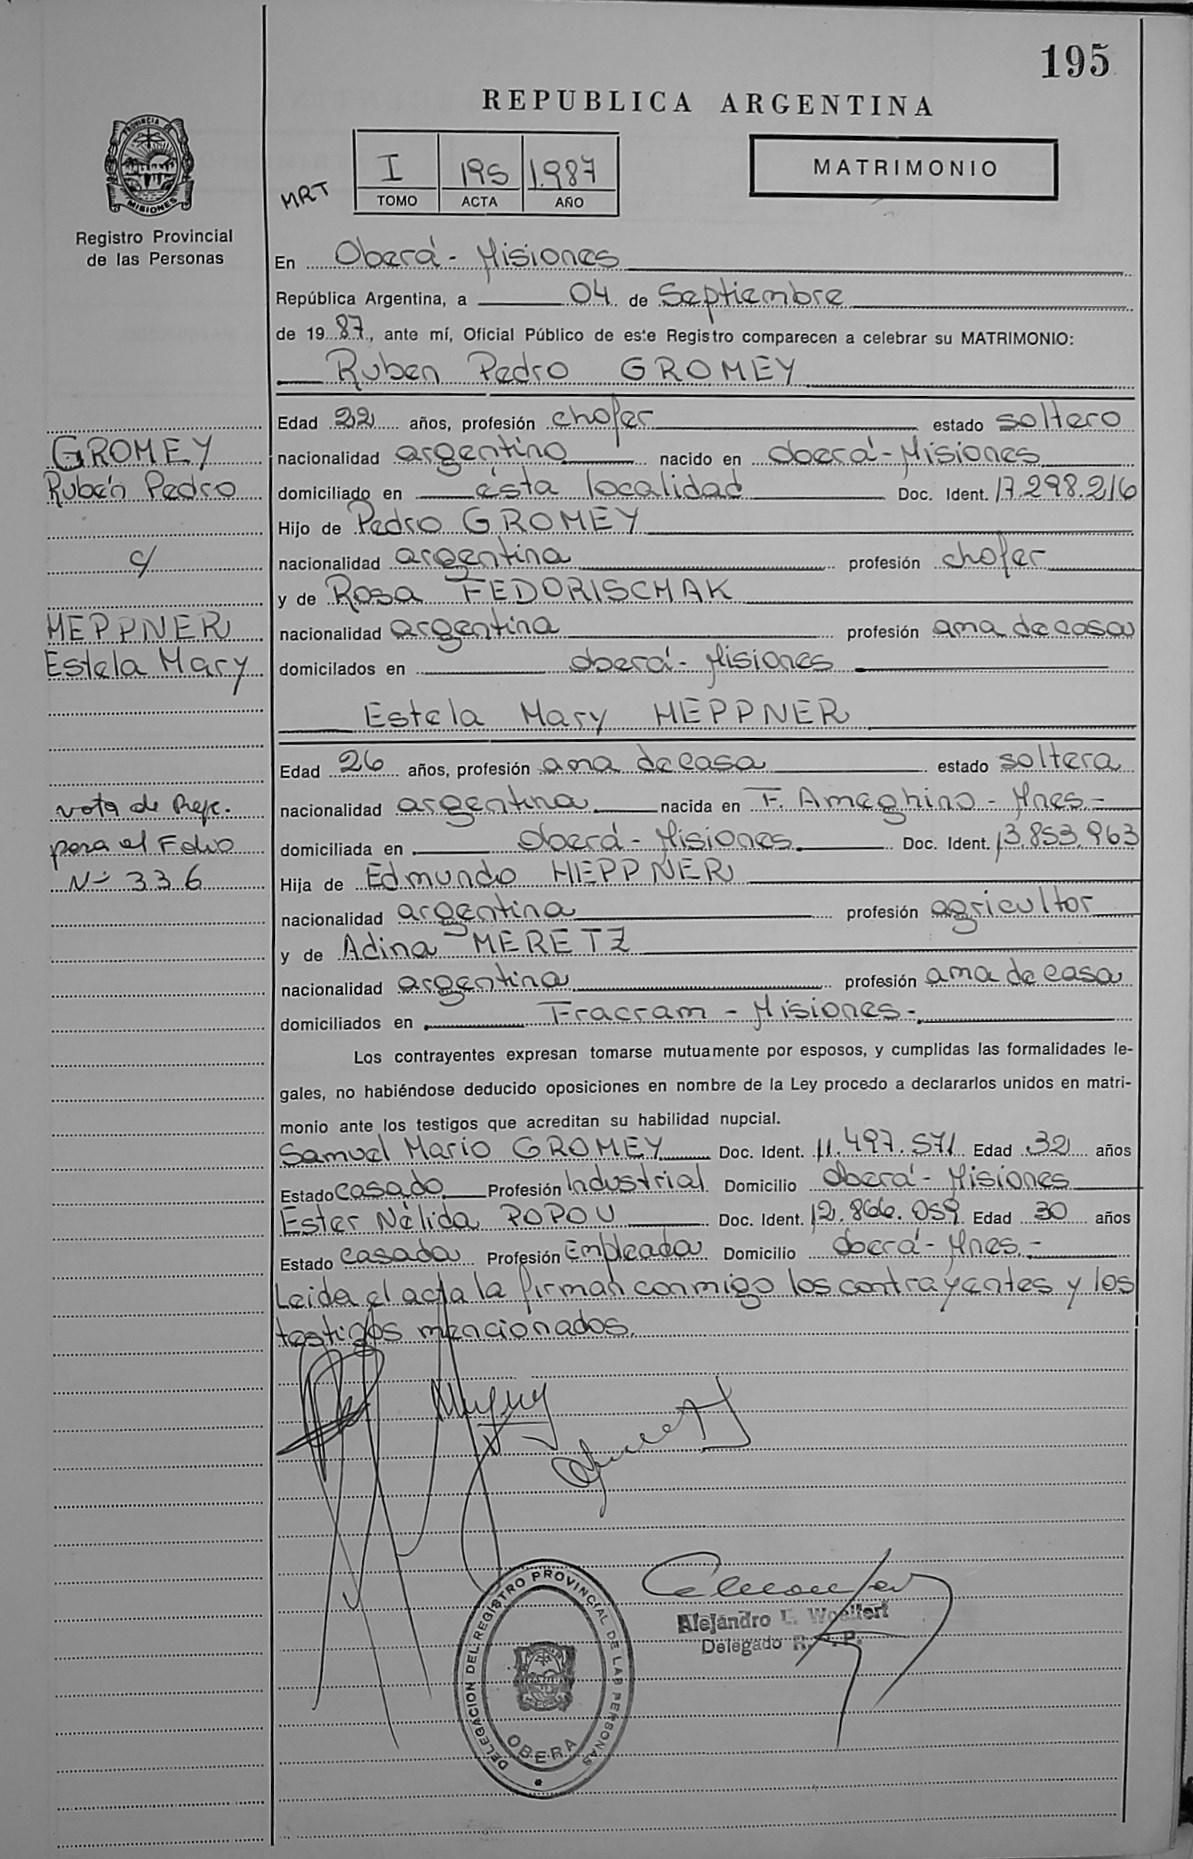 195
REPUBLICA ARGENTINA
I 195 1.987
TOMO ACTA AÑO
MRT
MATRIMONIO
PROVINCIA DE MISIONES
Registro Provincial
de las Personas
En Oberá - Misiones
República Argentina, a 04 de Septiembre
de 19 87, ante mí, Oficial Público de este Registro comparecen a celebrar su MATRIMONIO:
Ruben Pedro GROMEY
Edad 22 años, profesión chofer estado soltero
nacionalidad argentino nacido en Oberá - Misiones
domiciliado en ésta localidad Doc. Ident. 17.298.216
Hijo de Pedro GROMEY
nacionalidad argentina profesión chofer
y de Rosa FEDORISCHAK
nacionalidad argentina profesión ama de casa
domicilados en Oberá - Misiones
GROMEY
Rubén Pedro
c/
HEPPNER
Estela Mary
Estela Mary HEPPNER
Edad 26 años, profesión ama de casa estado soltera
nacionalidad argentina nacida en F. Ameghino - Mnes -
domiciliada en Oberá - Misiones. Doc. Ident. 13.853.963
Hija de Edmundo HEPPNER
nacionalidad argentina profesión agricultor
y de Adina MERETZ
nacionalidad argentina profesión ama de casa
domiciliados en Fracram - Misiones -
nota de Ref.
para el Folio
Nº 336
Los contrayentes expresan tomarse mutuamente por esposos, y cumplidas las formalidades le-
gales, no habiéndose deducido oposiciones en nombre de la Ley procedo a declararlos unidos en matri-
monio ante los testigos que acreditan su habilidad nupcial.
Samuel Mario GROMEY Doc. Ident. 11.497.571 Edad 32 años
Estado casado Profesión Industrial Domicilio Oberá - Misiones
Ester Nélida POPOU Doc. Ident. 12.866.059 Edad 30 años
Estado casada Profesión Empleada Domicilio Oberá - Mnes. -
Leida el acta la firman conmigo los contrayentes y los
testigos mencionados.
DELEGACION DEL REGISTRO PROVINCIAL DE LAS PERSONAS
OBERA
Alejandro E. Woelfert
Delegado R. P. P.